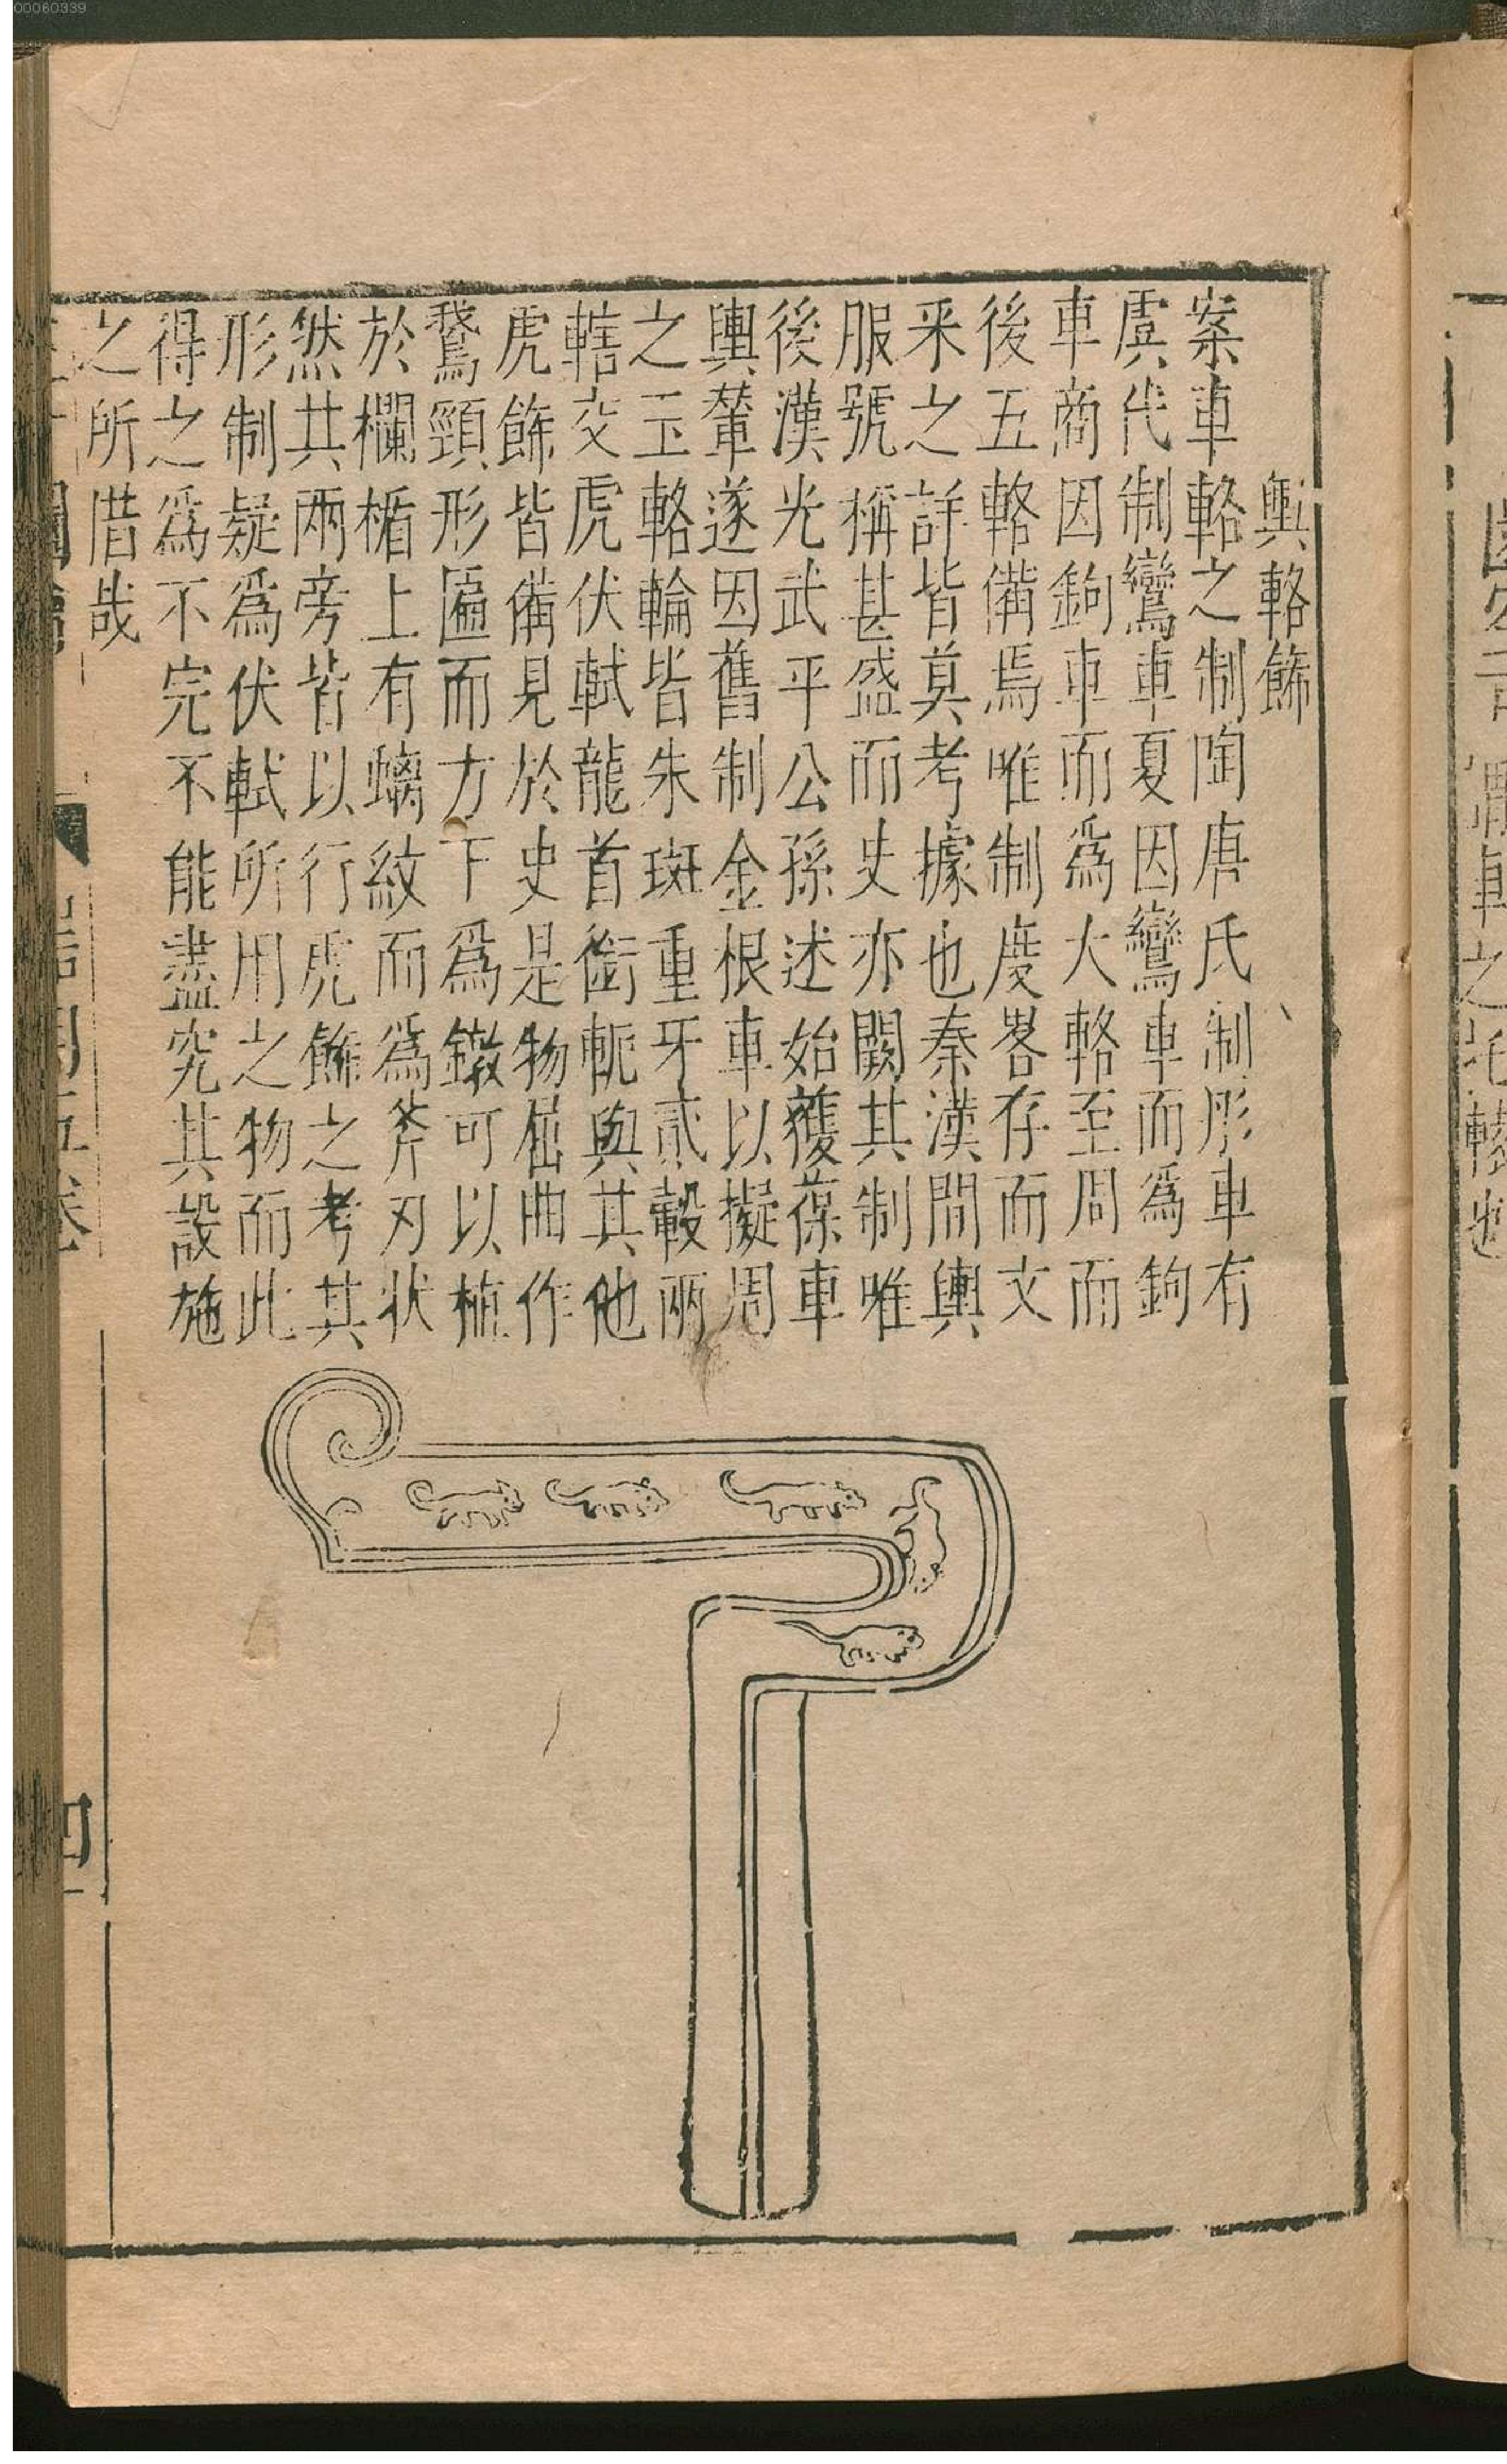 00060339
輿輅飾
案車輅之制陶唐氏制彤車有
虞代制鸞車夏因鸞車而爲鉤
車商因鉤車而爲大輅至周而
後五輅備焉唯制度畧存而文
釆之詳皆莫考據也秦漢間輿
服號稱甚盛而史亦闕其制唯
後漢光武平公孫述始獲葆車
輿輦遂因舊制金根車以擬周
之玉輅輪皆朱斑重牙貳轂兩
轄交虎伏軾龍首銜軛與其他
虎飾皆備見於史是物屈曲作
鵞頸形匾而方下爲鐓可以植
於欄楯上有螭紋而爲斧刃狀
然其兩旁皆以行虎飾之考其
形制疑爲伏軾所用之物而此
得之爲不完不能盡究其設施
之所借哉
四